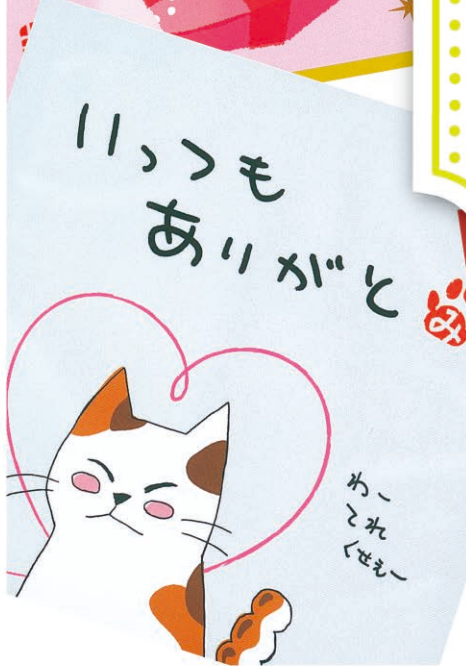 いっつも
ありがと
み
わー
てれ
くせぇー